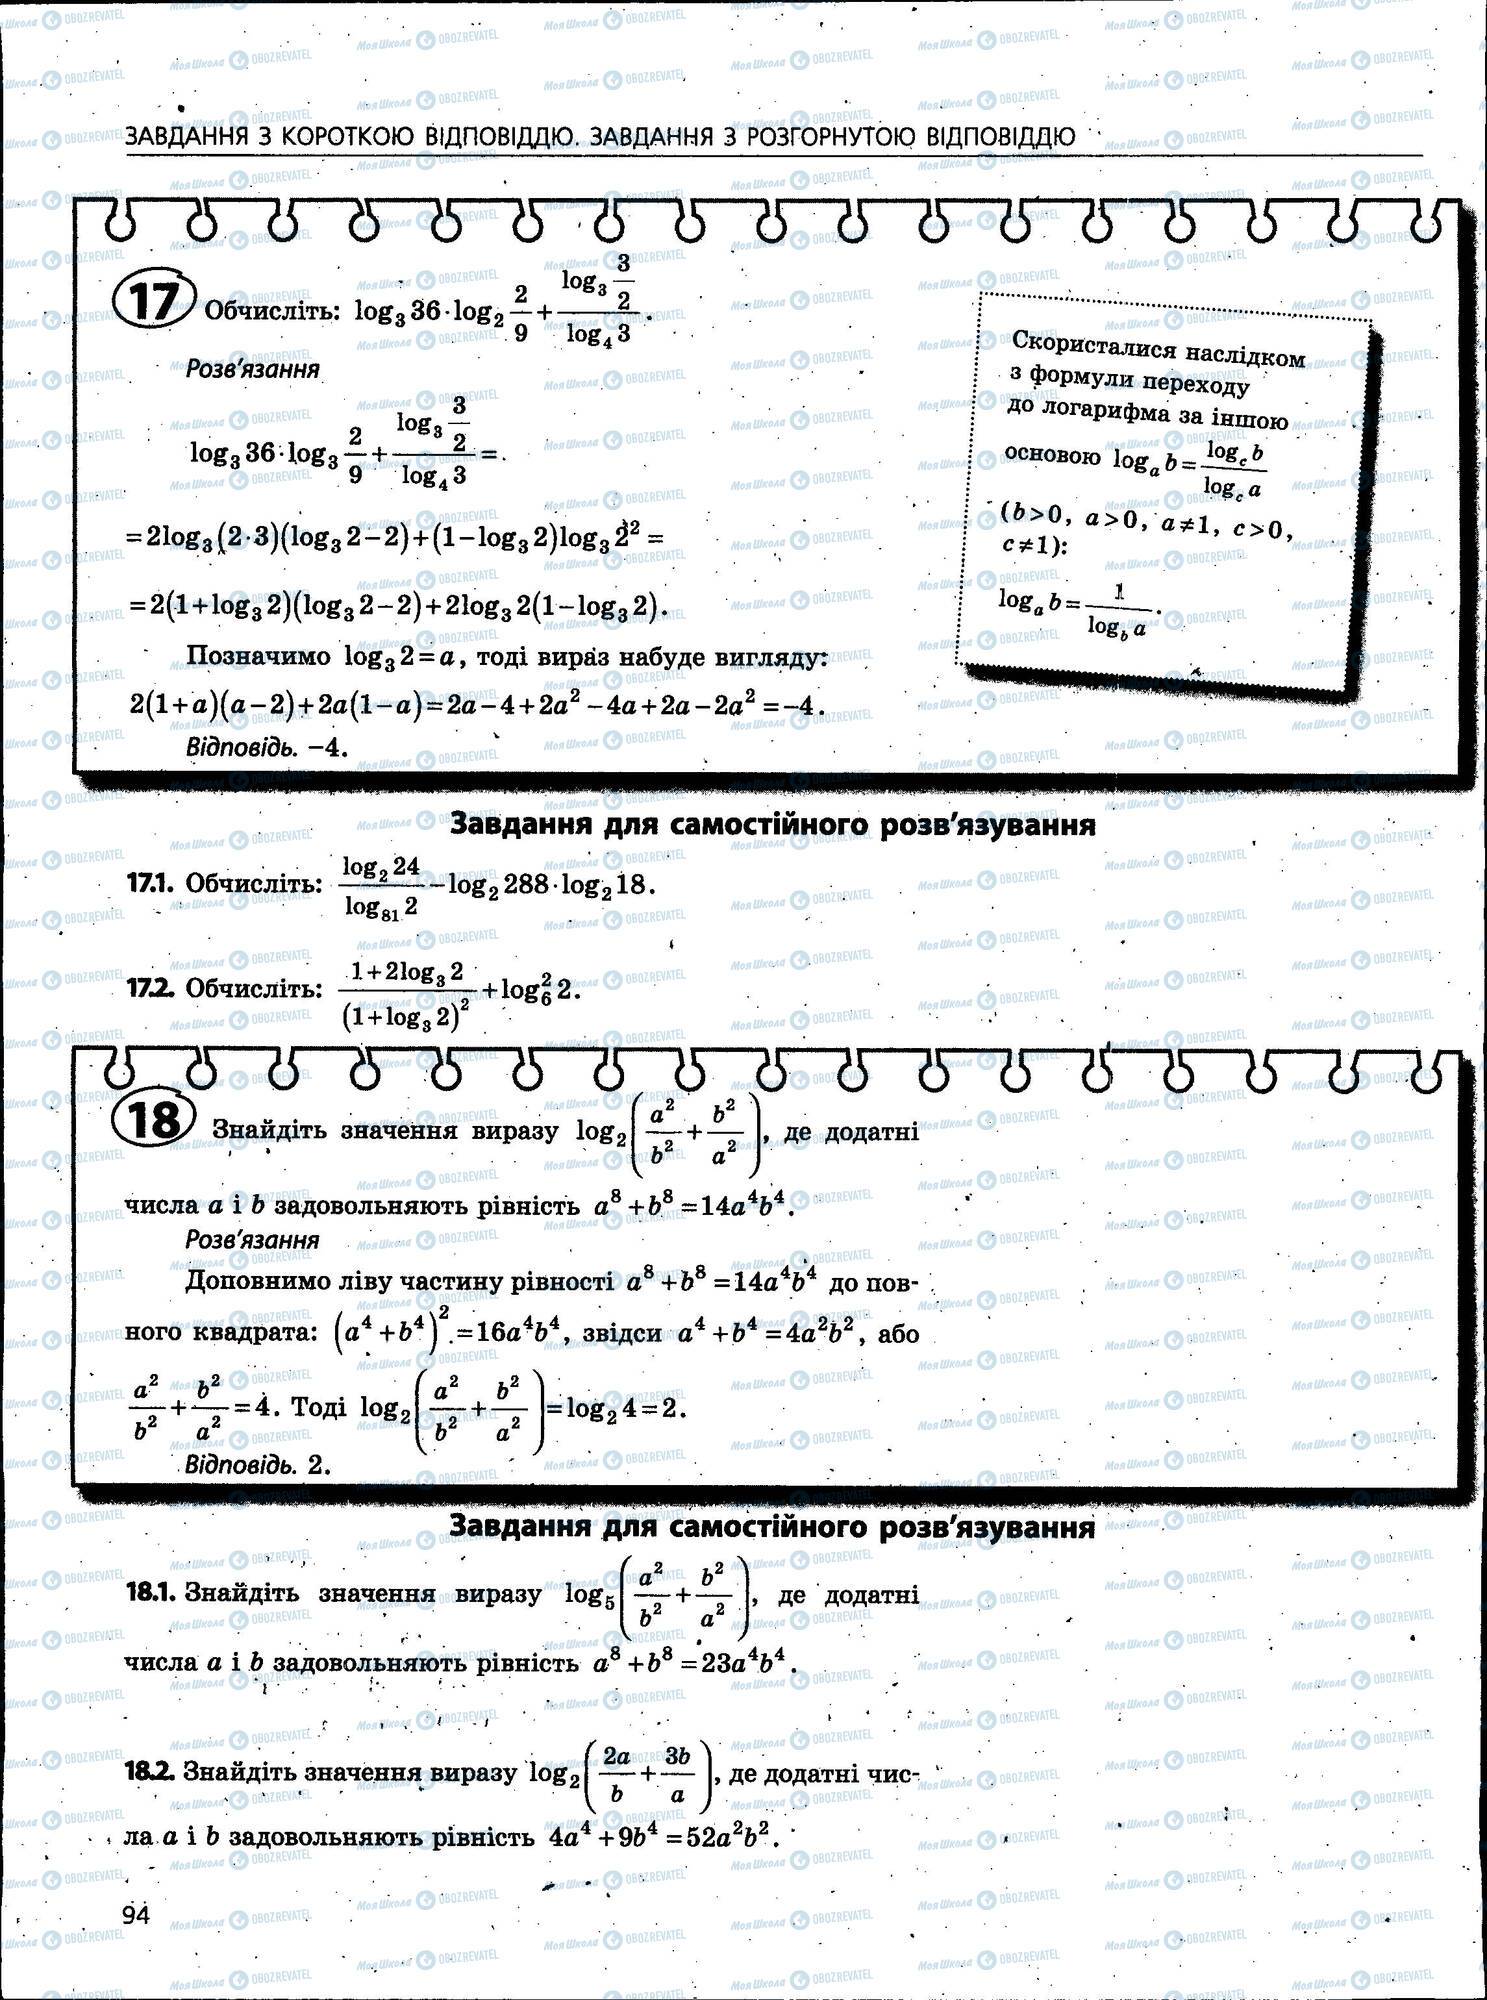 ЗАВДАННЯ З КОРОТКОЮ ВІДПОВІДДЮ. ЗАВДАННЯ З РОЗГОРНУТОЮ ВІДПОВІДДЮ
17 Обчисліть: log₃ 36 · log₂ 2/9 + (log₃ 3/2)/(log₄ 3).
Розв'язання
log₃ 36 · log₃ 2/9 + (log₃ 3/2)/(log₄ 3) =
= 2log₃(2·3)(log₃ 2 − 2) + (1 − log₃ 2)log₃ 2² =
= 2(1 + log₃ 2)(log₃ 2 − 2) + 2log₃ 2(1 − log₃ 2).
Позначимо log₃ 2 = a, тоді вираз набуде вигляду:
2(1 + a)(a − 2) + 2a(1 − a) = 2a − 4 + 2a² − 4a + 2a − 2a² = −4.
Відповідь. −4.
Скористалися наслідком
з формули переходу
до логарифма за іншою
основою logₐ b = (log_c b)/(log_c a)
(b>0, a>0, a≠1, c>0,
c≠1):
logₐ b = 1/(log_b a).
Завдання для самостійного розв'язування
17.1. Обчисліть: (log₂ 24)/(log₈₁ 2) − log₂ 288 · log₂ 18.
17.2. Обчисліть: (1 + 2log₃ 2)/(1 + log₃ 2)² + log₆² 2.
18 Знайдіть значення виразу log₂(a²/b² + b²/a²), де додатні
числа a і b задовольняють рівність a⁸ + b⁸ = 14a⁴b⁴.
Розв'язання
Доповнимо ліву частину рівності a⁸ + b⁸ = 14a⁴b⁴ до пов-
ного квадрата: (a⁴ + b⁴)² = 16a⁴b⁴, звідси a⁴ + b⁴ = 4a²b², або
a²/b² + b²/a² = 4. Тоді log₂(a²/b² + b²/a²) = log₂ 4 = 2.
Відповідь. 2.
Завдання для самостійного розв'язування
18.1. Знайдіть значення виразу log₅(a²/b² + b²/a²), де додатні
числа a і b задовольняють рівність a⁸ + b⁸ = 23a⁴b⁴.
18.2. Знайдіть значення виразу log₂(2a/b + 3b/a), де додатні чис-
ла a і b задовольняють рівність 4a⁴ + 9b⁴ = 52a²b².
94
Моя Школа OBOZREVATEL